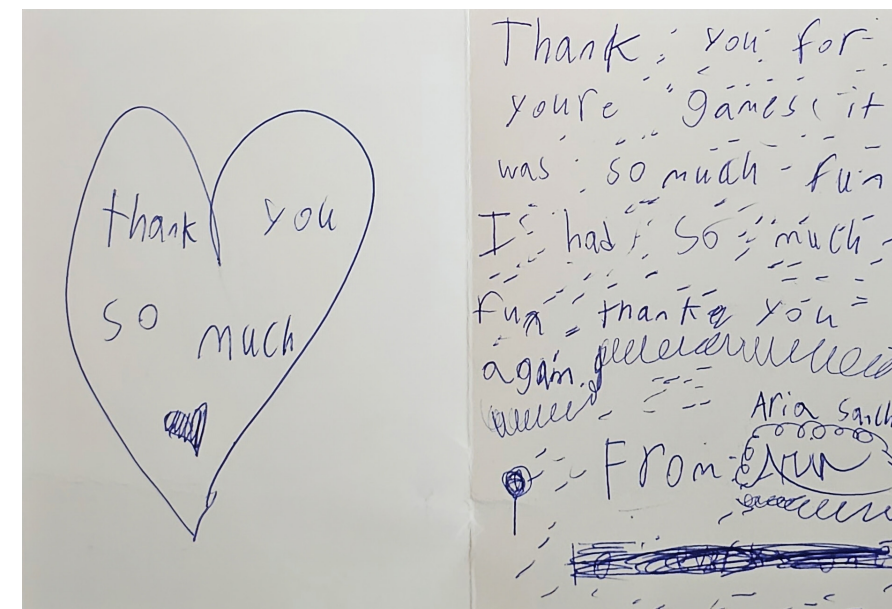 thank you
so much
Thank you for
youre games it
was so much fun
I had so much
fun thank you
again.
Aria
From